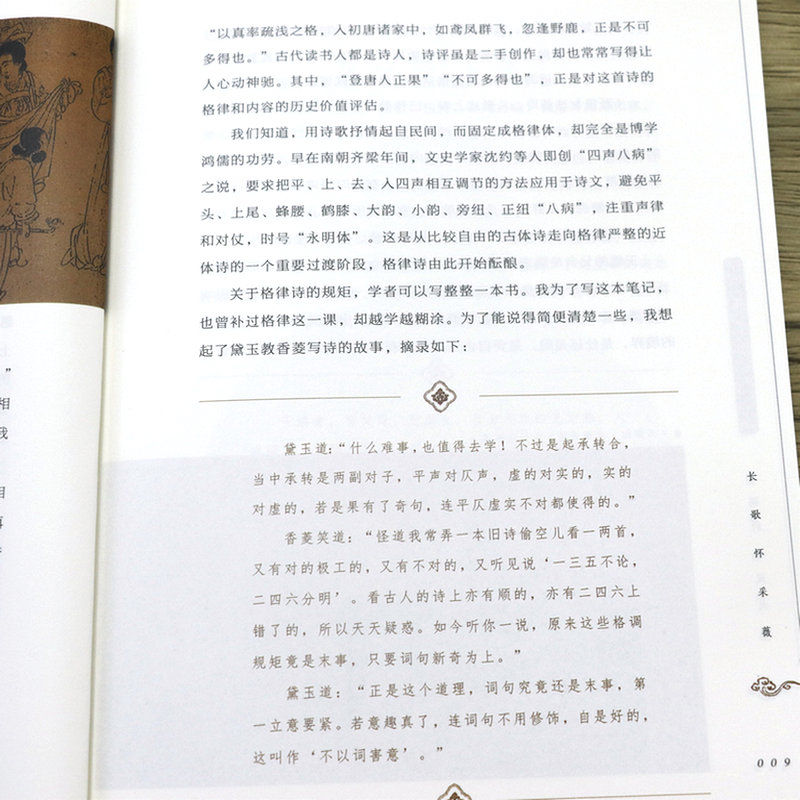 “以真率疏浅之格，入初唐诸家中，如鸢凤群飞，忽逢野鹿，正是不可
多得也。”古代读书人都是诗人，诗评虽是二手创作，却也常常写得让
人心动神驰。其中，“登唐人正果”“不可多得也”，正是对这首诗的
格律和内容的历史价值评估。
我们知道，用诗歌抒情起自民间，而固定成格律体，却完全是博学
鸿儒的功劳。早在南朝齐梁年间，文史学家沈约等人即创“四声八病”
之说，要求把平、上、去、入四声相互调节的方法应用于诗文，避免平
头、上尾、蜂腰、鹤膝、大韵、小韵、旁纽、正纽“八病”，注重声律
和对仗，时号“永明体”。这是从比较自由的古体诗走向格律严整的近
体诗的一个重要过渡阶段，格律诗由此开始酝酿。
关于格律诗的规矩，学者可以写整整一本书。我为了写这本笔记，
也曾补过格律这一课，却越学越糊涂。为了能说得简便清楚一些，我想
起了黛玉教香菱写诗的故事，摘录如下：
黛玉道：“什么难事，也值得去学！不过是起承转合，
当中承转是两副对子，平声对仄声，虚的对实的，实的
对虚的，若是果有了奇句，连平仄虚实不对都使得的。”
香菱笑道：“怪道我常弄一本旧诗偷空儿看一两首，
又有对的极工的，又有不对的，又听见说‘一三五不论，
二四六分明’。看古人的诗上亦有顺的，亦有二四六上
错了的，所以天天疑惑。如今听你一说，原来这些格调
规矩竟是末事，只要词句新奇为上。”
黛玉道：“正是这个道理，词句究竟还是末事，第
一立意要紧。若意趣真了，连词句不用修饰，自是好的，
这叫作‘不以词害意’。”
长歌怀采薇
009
”
相
我